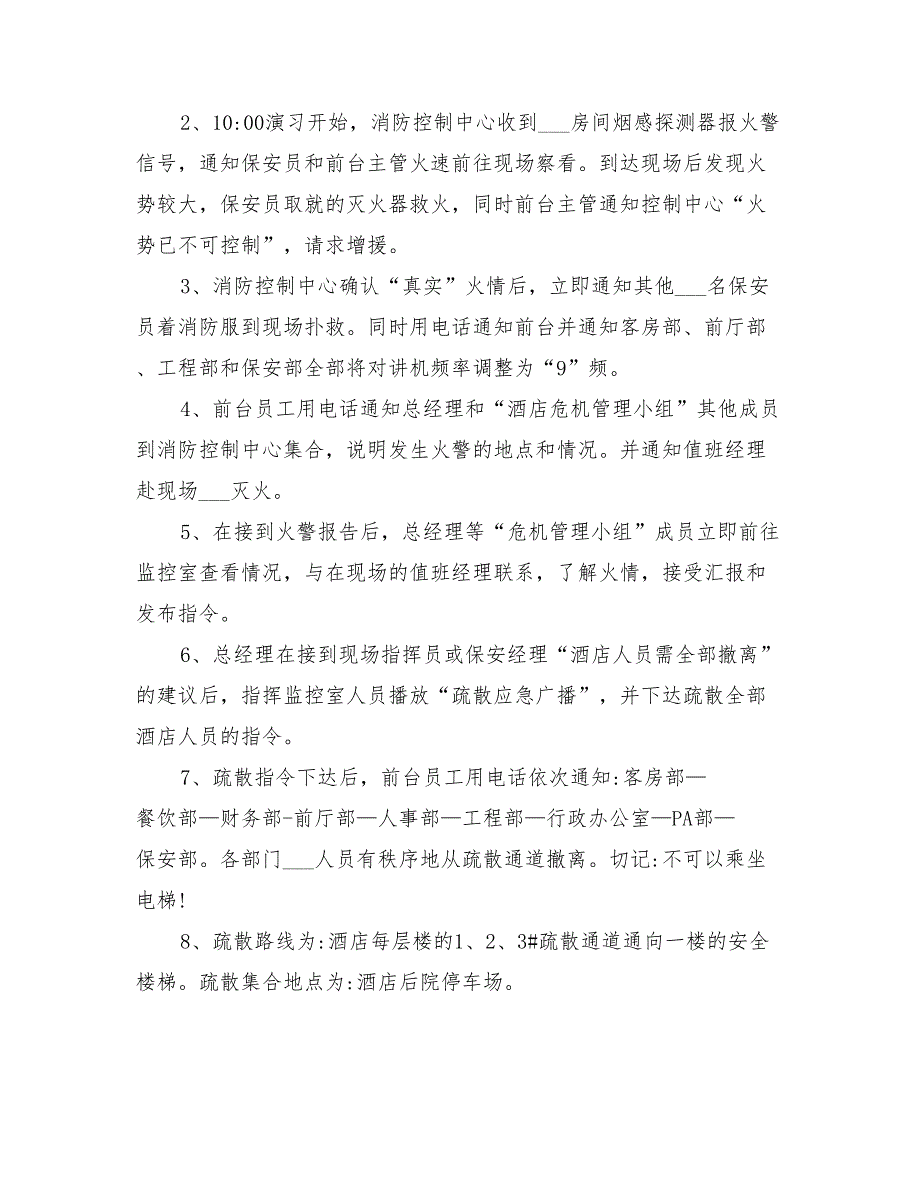 2、10:00演习开始，消防控制中心收到___房间烟感探测器报火警
信号，通知保安员和前台主管火速前往现场察看。到达现场后发现火
势较大，保安员取就的灭火器救火，同时前台主管通知控制中心“火
势已不可控制”，请求增援。
3、消防控制中心确认“真实”火情后，立即通知其他___名保安
员着消防服到现场扑救。同时用电话通知前台并通知客房部、前厅部
、工程部和保安部全部将对讲机频率调整为“9”频。
4、前台员工用电话通知总经理和“酒店危机管理小组”其他成员
到消防控制中心集合，说明发生火警的地点和情况。并通知值班经理
赴现场___灭火。
5、在接到火警报告后，总经理等“危机管理小组”成员立即前往
监控室查看情况，与在现场的值班经理联系，了解火情，接受汇报和
发布指令。
6、总经理在接到现场指挥员或保安经理“酒店人员需全部撤离”
的建议后，指挥监控室人员播放“疏散应急广播”，并下达疏散全部
酒店人员的指令。
7、疏散指令下达后，前台员工用电话依次通知:客房部—
餐饮部—财务部-前厅部—人事部—工程部—行政办公室—PA部—
保安部。各部门___人员有秩序地从疏散通道撤离。切记:不可以乘坐
电梯!
8、疏散路线为:酒店每层楼的1、2、3#疏散通道通向一楼的安全
楼梯。疏散集合地点为:酒店后院停车场。